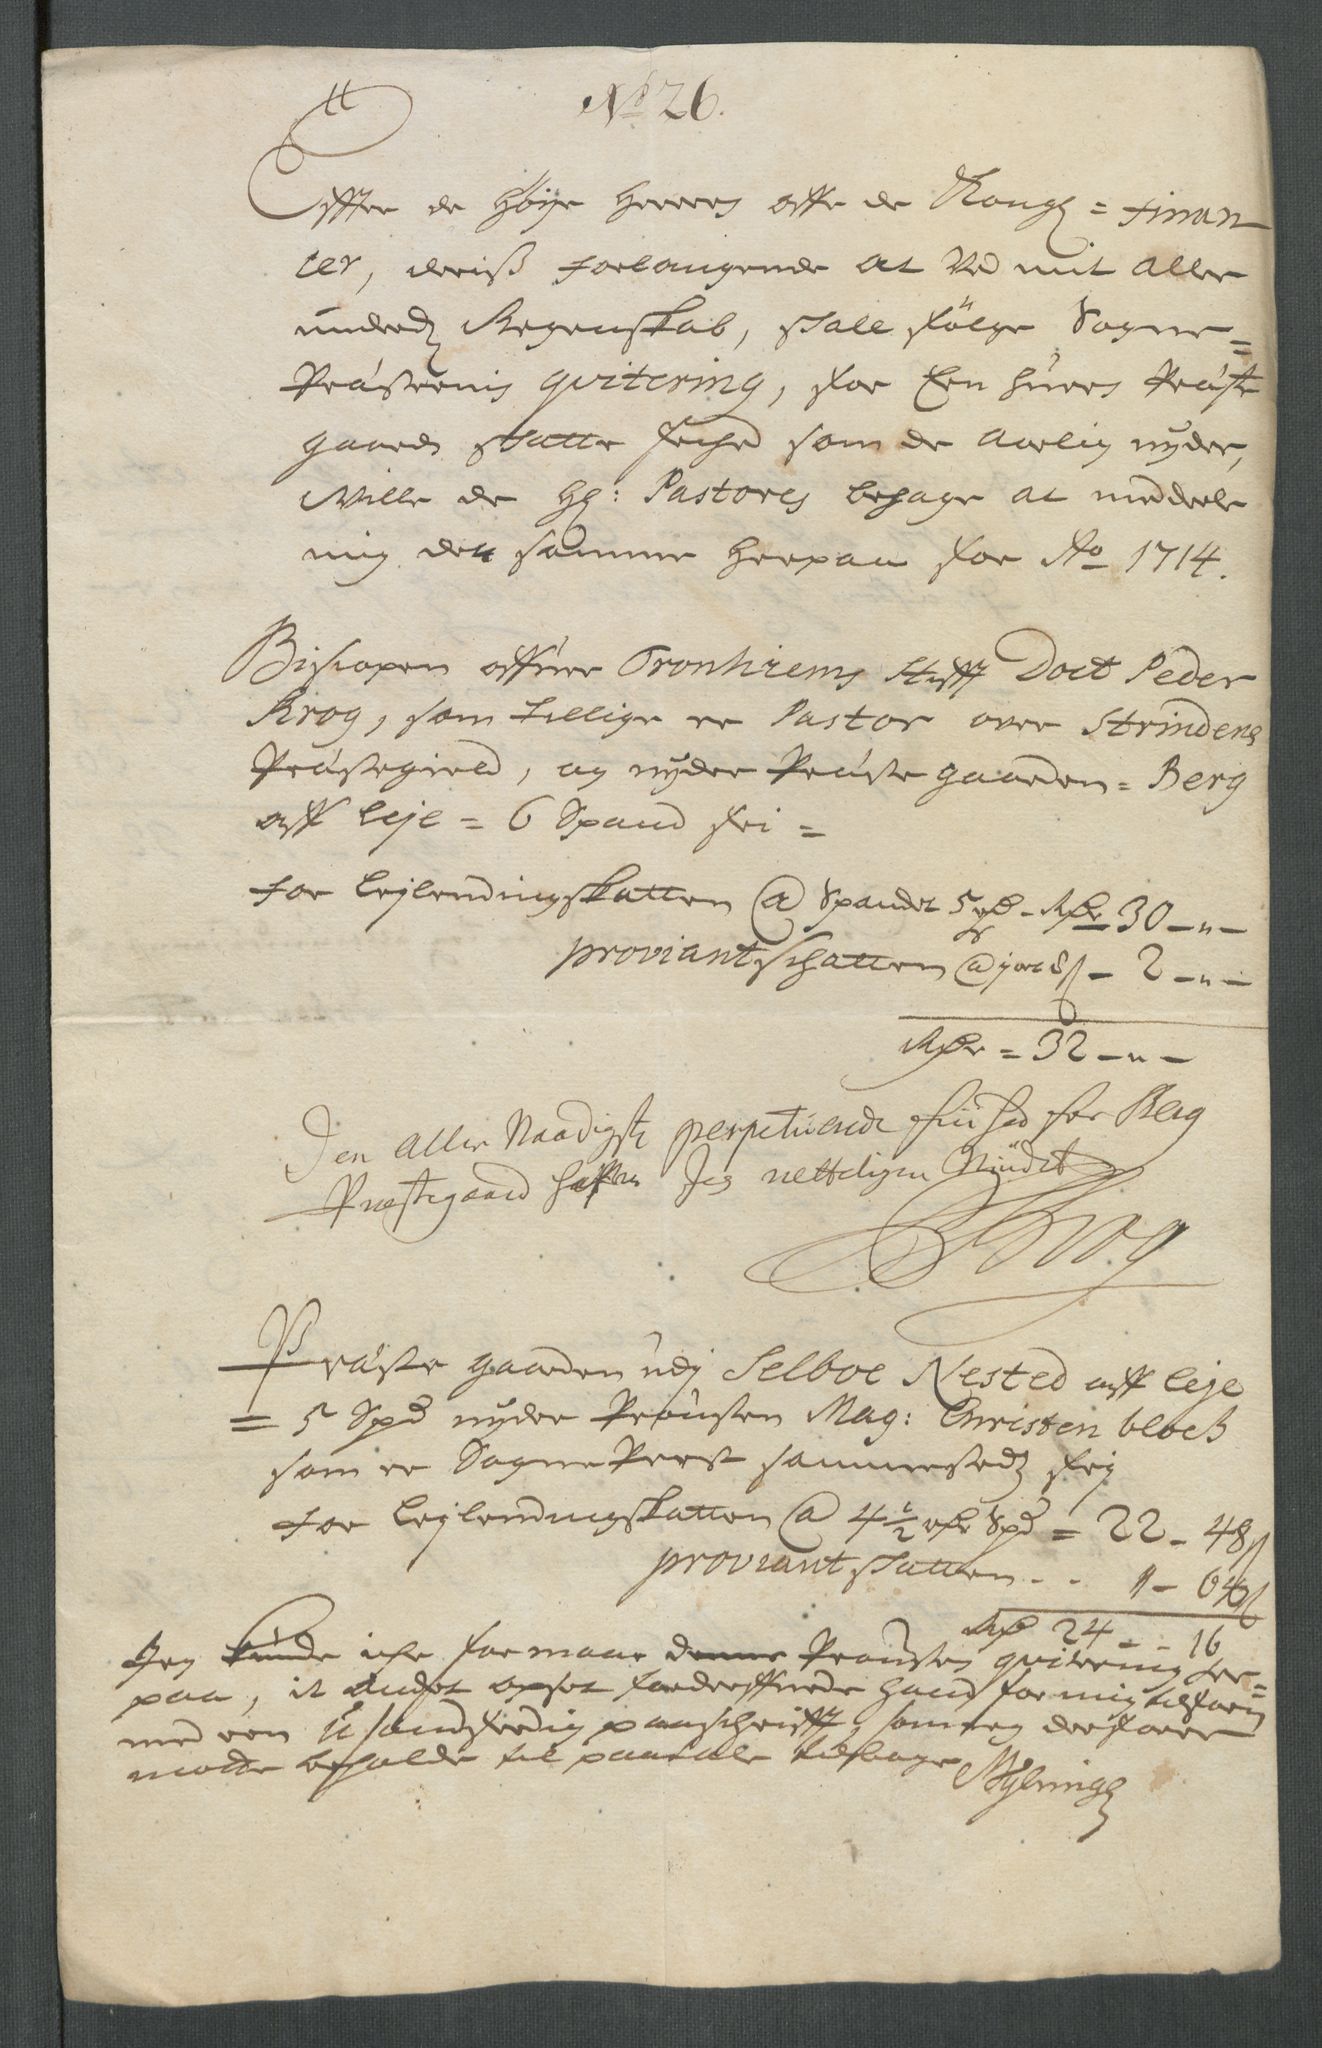 No 26.
Effter de Höije Herrers offr de Kongl = Finan
cer, deriß forlangende at Ved mit aller
underd Regenskab, skall følge Sogne=
Præsternis qvitering, for Een hvers Præste
gaards skatte frihed som de Aarlig nyder,
Ville de Hr: Pastores behage at meddeele
mig den samme herpaa for Ao 1714.
Biscopen offuer Tronhiems Stifft Doct Peder
Krog, som tillige er Pastor over Strindens
Præstegield, og nyder Præste gaarden = Berg
aff leje = 6 Spand fri =
for leylendingskatten @ Spandet 5 rd - Rdr 30 - " -
proviant schatten - 2 - " -
Rdr = 32 - " -
Den aller Naadigste perpetuerede friihed for Berg
Præstegaard haffuer Jeg retteligen Nÿdet
PKrog
Præste gaarden udj Selboe Nested aff leje
= 5 Spd nyder Prousten Mag: Christen block
som er Sogne Prest sammesteds frj
for leylendingskatten @ 4 1/2 rdr Spd = 22 - 48 ß
proviant skatten - - 1 - 64 ß
Rdr 24 - - 16
Jeg kunde iche formaae denne Proustes qvitering her=
paa,
med een usandferdig paaschrifft, som jeg derfore
motte beholde til paatale tilbage